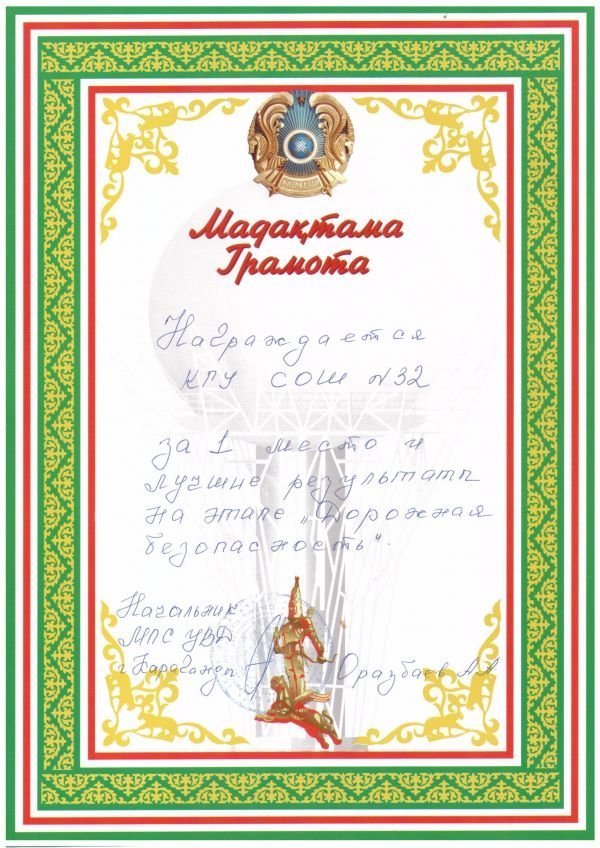 Мадақтама
Грамота
Награждается
КГУ СОШ №32
за 1 место и
лучшие результаты
на этапе „Дорожная
безопасность".
Начальник
МПС УВД
г Караганды Уразбаев А А